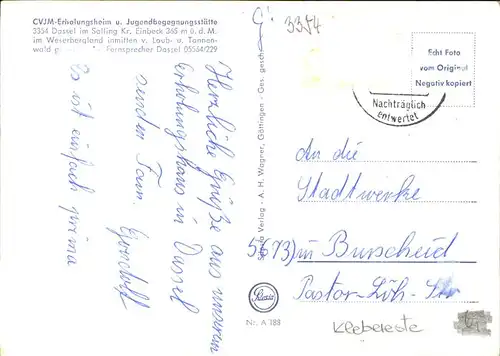 CVJM-Erholungsheim u. Jugendbegegnungsstätte
3354 Dassel im Solling Kr. Einbeck 265 m ü. d. M.
im Weserbergland inmitten v. Laub- u. Tannen-
wald Fernsprecher Dassel 05564/229
Herzliche Grüße aus unserem
Erholungshaus in Dassel
senden Fam.
Es ist einfach prima
Selecta Verlag - A. H. Wagner, Göttingen - Ges. gesch.
Nr. A 188
3354
Echt Foto
vom Original
Negativ kopiert
Nachträglich
entwertet
An die
Stadtwerke
5673) in Burscheid
Pastor-Löh-Str
Klebereste